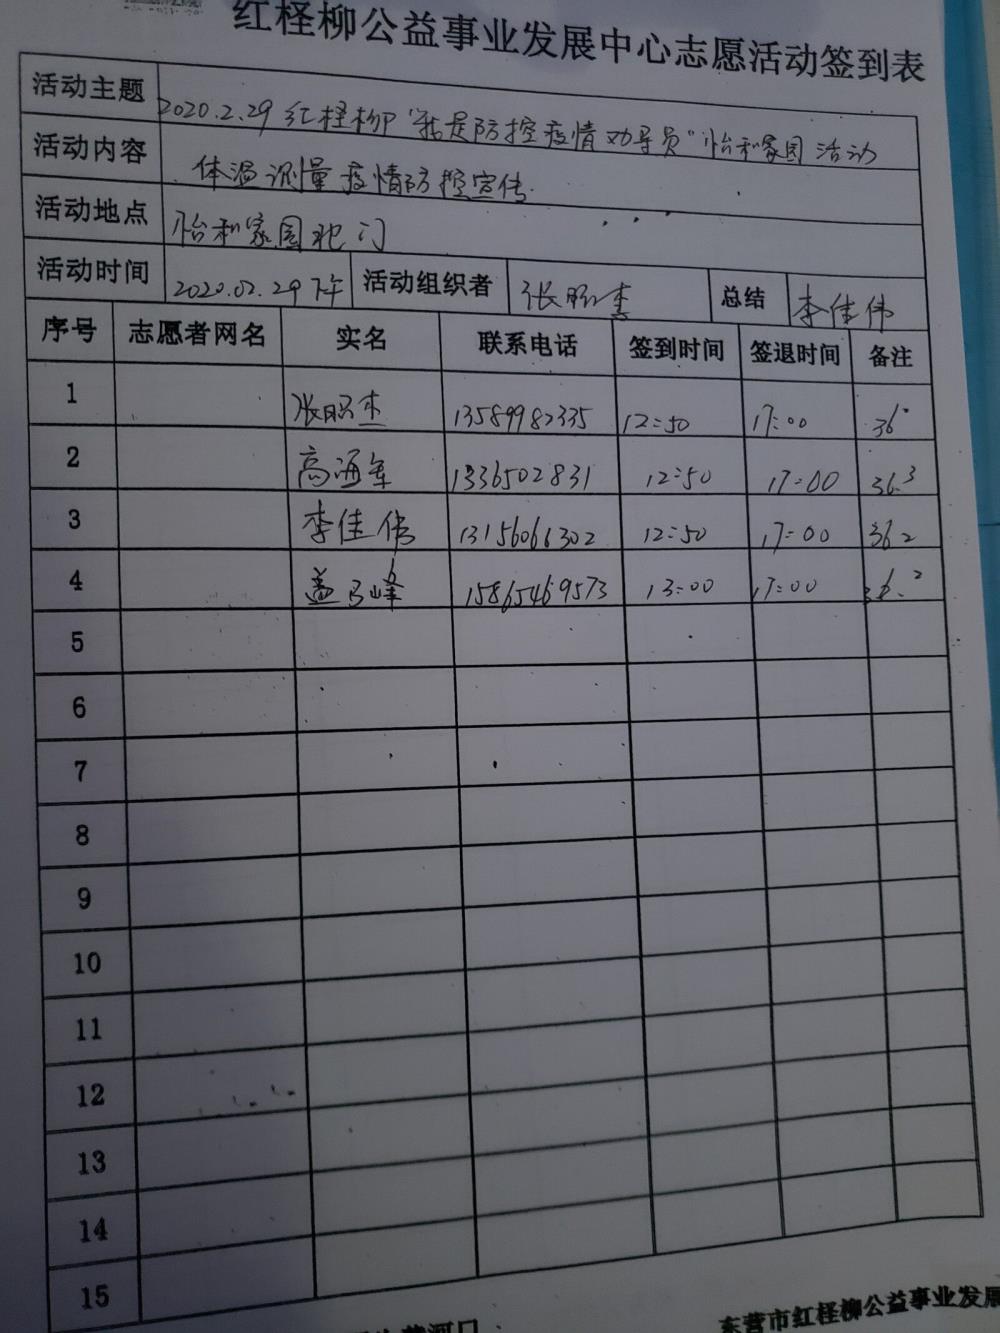 红柽柳公益事业发展中心志愿活动签到表
活动主题 2020.2.29 红柽柳"我是防控疫情劝导员"怡和家园活动
活动内容 体温测量 疫情防控宣传.
活动地点 怡和家园北门
活动时间 2020.02.29下午 活动组织者 张昭杰 总结 李佳伟
序号 志愿者网名 实名 联系电话 签到时间 签退时间 备注
1 张昭杰 13589982335 12:50 17:00 36°
2 高海军 1336502831 12:50 17:00 36.3
3 李佳伟 13156061302 12:50 17:00 36.2
4 峰 15865469573 13:00 17:00 36.2
5
6
7
8
9
10
11
12
13
14
15
黄河口
东营市红柽柳公益事业发展